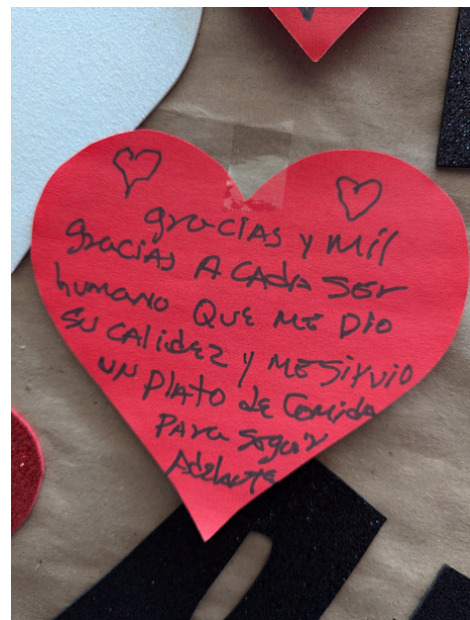 gracias y mil
gracias A CADA Ser
humano QUE ME DIO
SU CAlidez y ME Sirvio
UN PlATO de Comida
PAra Seguir
Adelante